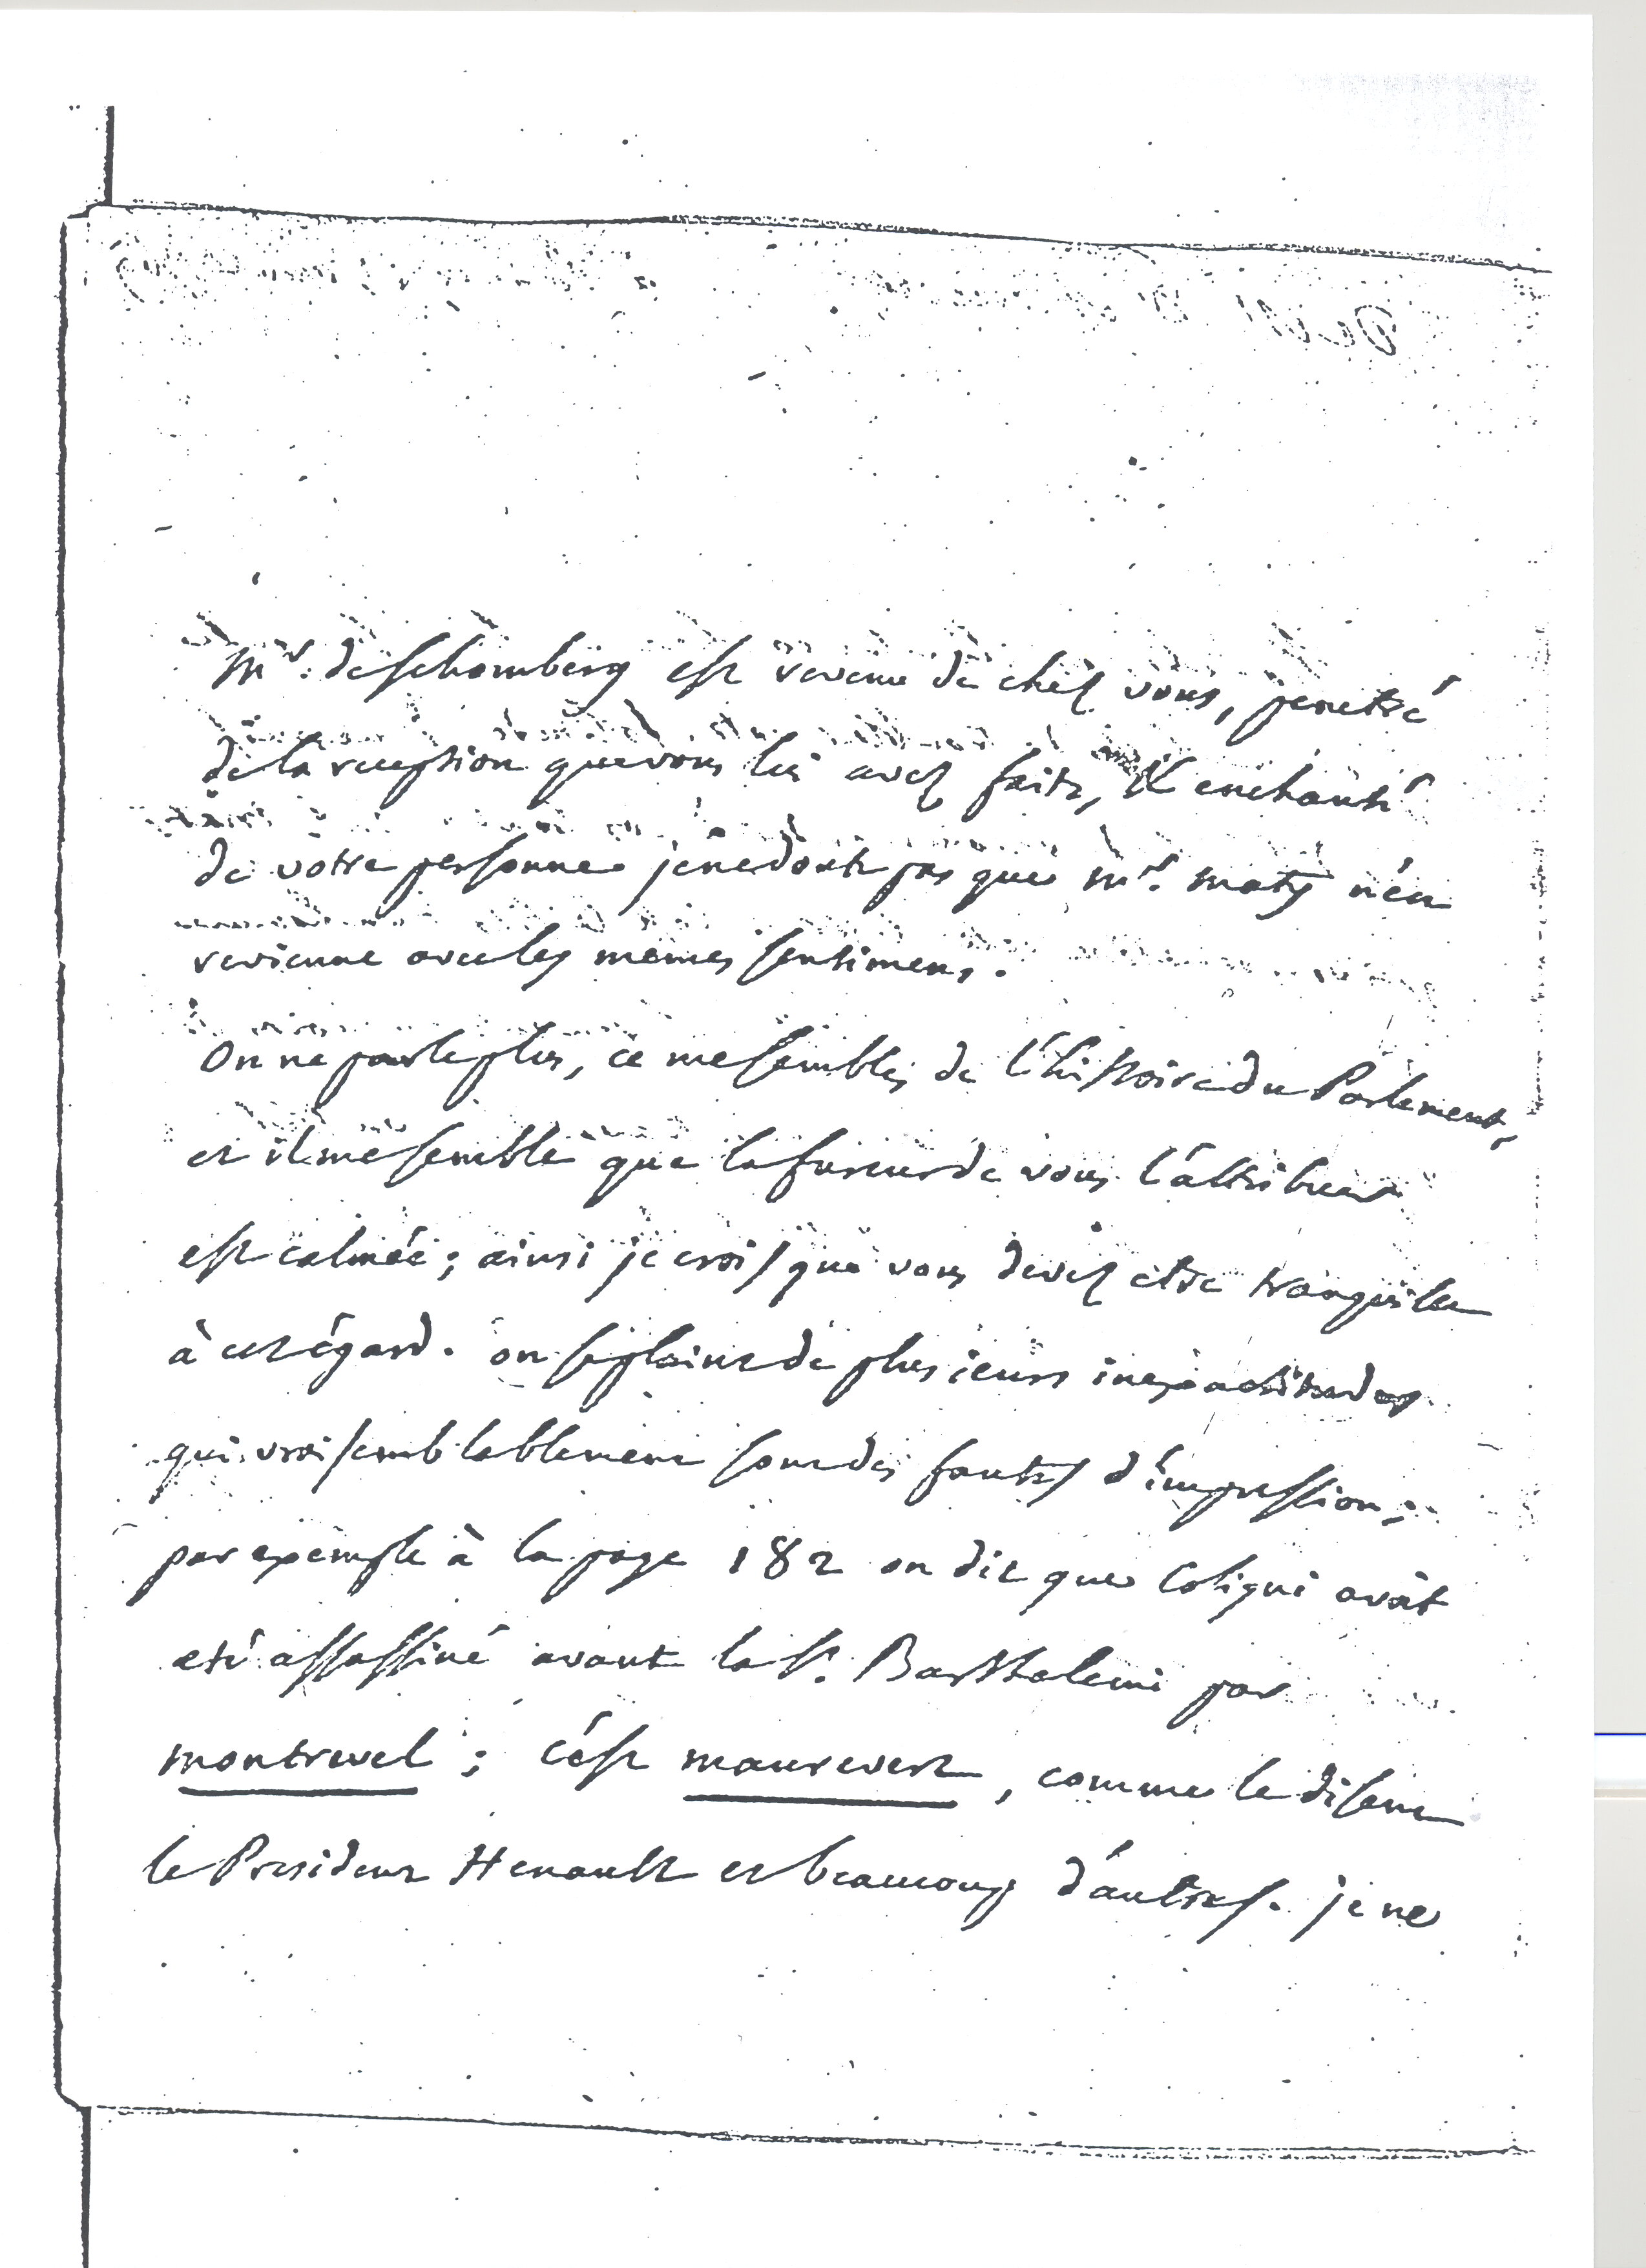 Mr. de Schomberg est revenu de chez vous, penetré
de la reception que vous lui avez faite, et enchanté
de votre personne je ne doute pas que mr. maty n'en
revienne avec les memes sentimens.
On ne parle plus, ce me semble, de l'histoire du Parlement,
et il me semble que la fureur de vous l'attribuer
est calmée; ainsi je crois que vous devez etre tranquille
à cet égard. on se plaint de plusieurs inexactitudes
qui vraisemblablement sont des fautes d'impression;
par exemple à la page 182 on dit que Coligni avoit
eté assassiné avant la St. Barthelemi par
montrevel; c'est maurevert, comme le disent
le President Henault et beaucoup d'autres. je ne